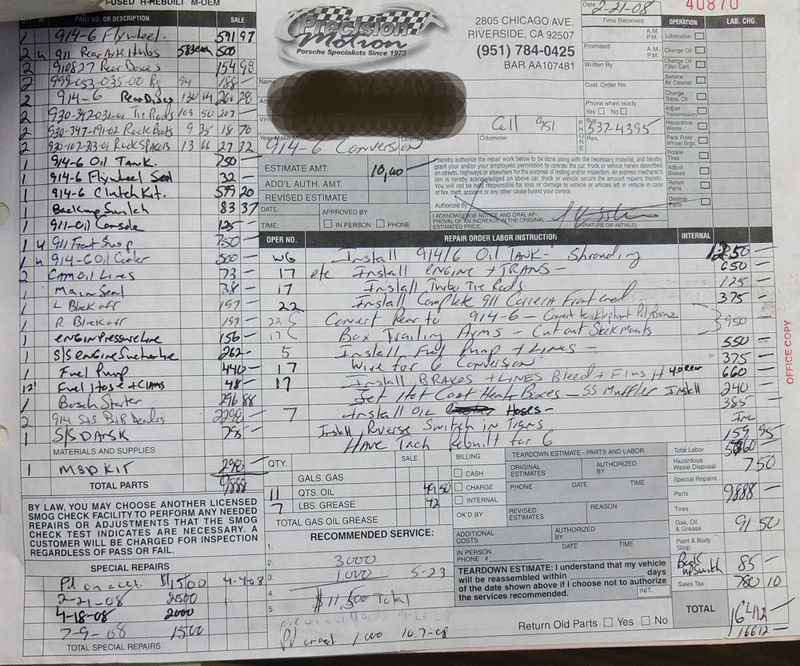 T-USED R-REBUILT M-OEM
M PART NO. OR DESCRIPTION SALE
1 914-6 Flywheel. 591 97
2 u 911 Rear Axle Hubs 583 500
2 910827 Rear Doses 154 98
2 999-053-035-00 94 188
2 914-6 Rear Discs 206 28
2 930-347-031-01 Tie Rods 103 50 207 -
2 930-347-191-02 Rack Boots 9 35 18 70
2 Rack Spacers 13 66 27 32
1 914-6 Oil Tank. 750 -
1 914-6 Flywheel Seal 32 -
1 914-6 Clutch Kit. 599 20
1 Backup Switch 83 37
1 911-Oil Console 125 -
1 u 911 Front Susp 750 -
1 u 914-6 Oil Cooler 500 -
2 CAM Oil Lines 73 -
1 Main Seal 38 -
1 L Block off 197 -
1 R Block off 197 -
1 engine Pressure Line 156 -
1 S/S engine Suction Line 262 -
1 Fuel Pump 440 -
12' Fuel Hose + Clamps 48 -
1 Bosch Starter 296 88
2 914 S/S 2290
1 S/S DANSK 795 -
MATERIALS AND SUPPLIES
1 MSD KIT 298 -
TOTAL PARTS 9888 -
BY LAW, YOU MAY CHOOSE ANOTHER LICENSED
SMOG CHECK FACILITY TO PERFORM ANY NEEDED
REPAIRS OR ADJUSTMENTS THAT THE SMOG
CHECK TEST INDICATES ARE NECESSARY. A
CUSTOMER WILL BE CHARGED FOR INSPECTION
REGARDLESS OF PASS OR FAIL.
SPECIAL REPAIRS
Pd on acct $1500 4-4-08
2-21-08 2500
4-18-08 2000
7-9-08 1500
TOTAL SPECIAL REPAIRS
Precision
Motion
Porsche Specialists Since 1973
2805 CHICAGO AVE.
RIVERSIDE, CA 92507
(951) 784-0425
BAR AA107481
Name
Year-Make-Model
914-6 Conversion
License No.
Odometer
Cell 951
PHONE
Bus.
332-4395
Res.
Date 2-21-08
Time Received
Promised A.M. P.M.
Written By
Cust. Order No.
Phone when ready
Yes No
40870
OPERATION LAB. CHG.
Lubrication
Change Oil
Change Oil Filter Cart.
Service Air Cleaner
Change Trans. Oil
Adjust Transmission
Hazardous Waste
Pack Front Wheel Brgs.
Rotate Tires
Adjust Brakes
Retain Parts
Destroy Parts
ESTIMATE AMT. 10,000
ADD'L AUTH. AMT.
REVISED ESTIMATE
DATE: APPROVED BY
TIME: IN PERSON PHONE
I hereby authorize the repair work below to be done along with the necessary material, and hereby
grant you and/or your employees permission to operate the car, truck or vehicle herein described
on streets, highways or elsewhere for the purpose of testing and/or inspection. An express mechanic's
lien is hereby acknowledged on above car, truck or vehicle to secure the amount of repairs thereto.
You will not be held responsible for loss or damage to vehicle or articles left in vehicle in case
of fire, theft, accident or any other cause beyond your control.
Authorized By
I ACKNOWLEDGE NOTICE AND ORAL APPROVAL OF AN INCREASE IN THE ORIGINAL ESTIMATED PRICE.
(SIGNATURE OR INITIALS)
OPER NO. REPAIR ORDER LABOR INSTRUCTION INTERNAL
W6 Install 914/6 Oil TANK - Shrouding 1250 -
17 etc Install ENGINE + TRANS - 650
17 Install Turbo Tie Rods 125 -
22 Install Complete 911 Carrera Front end 375 -
22 Convert Rear to 914-6 - Convert to Elephant Poly Bronz 950
17 Box Trailing Arms - Cut out Seat Mounts
5 Install Fuel Pump + LINES - 550 -
17 Wire for 6 Conversion 375 -
17 Install BRAKES + LINES Bleed + Flush 660
Set Hot Coat Heat Boxes - SS Muffler Install 240
7 Install OIL Hoses - 385 -
Install Reverse Switch in Trans Inc
HAVE Tach Rebuilt for 6 159 95
QTY. SALE
GALS. GAS
11 QTS. OIL 49 50
7 LBS. GREASE 42
TOTAL GAS OIL GREASE
BILLING
CASH
CHARGE
INTERNAL
OK'D BY
TEARDOWN ESTIMATE - PARTS AND LABOR
ORIGINAL ESTIMATES AUTHORIZED BY
PHONE DATE TIME
REVISED ESTIMATES REASON
ADDITIONAL COSTS AUTHORIZED BY
DATE TIME
IN PERSON
PHONE #
TEARDOWN ESTIMATE: I understand that my vehicle
will be reassembled within days
of the date shown above if I choose not to authorize
the services recommended. INIT.
RECOMMENDED SERVICE:
1.
2. 3000
3. 1000 5-23
4. $11,500 Total
5.
Pd 1000 10-7-08
Return Old Parts Yes No
Total Labor
Hazardous Waste Disposal 7 50
Special Repairs
Parts 9888 -
Tires
Gas, Oil & Grease 91 50
Paint & Body Shop
Back up Switch 85 -
Sales Tax 780 10
TOTAL 16412
16612
OFFICE COPY